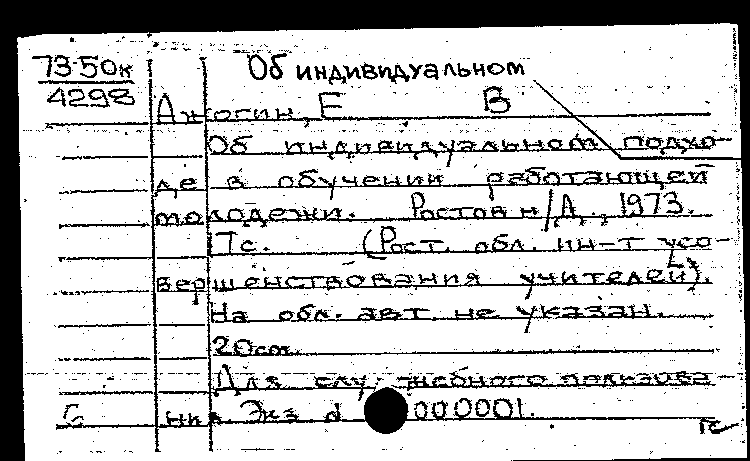 73-50к
4298
Об индивидуальном
Ажогин, Е В
Об индивидуальном подхо-
де в обучении работающей
молодежи. Ростов н/Д., 1973.
17с. (Рост. обл. ин-т усо-
вершенствования учителей).
На обл. авт. не указан.
20см.
Для служебного пользова
ния. Экз 000001.